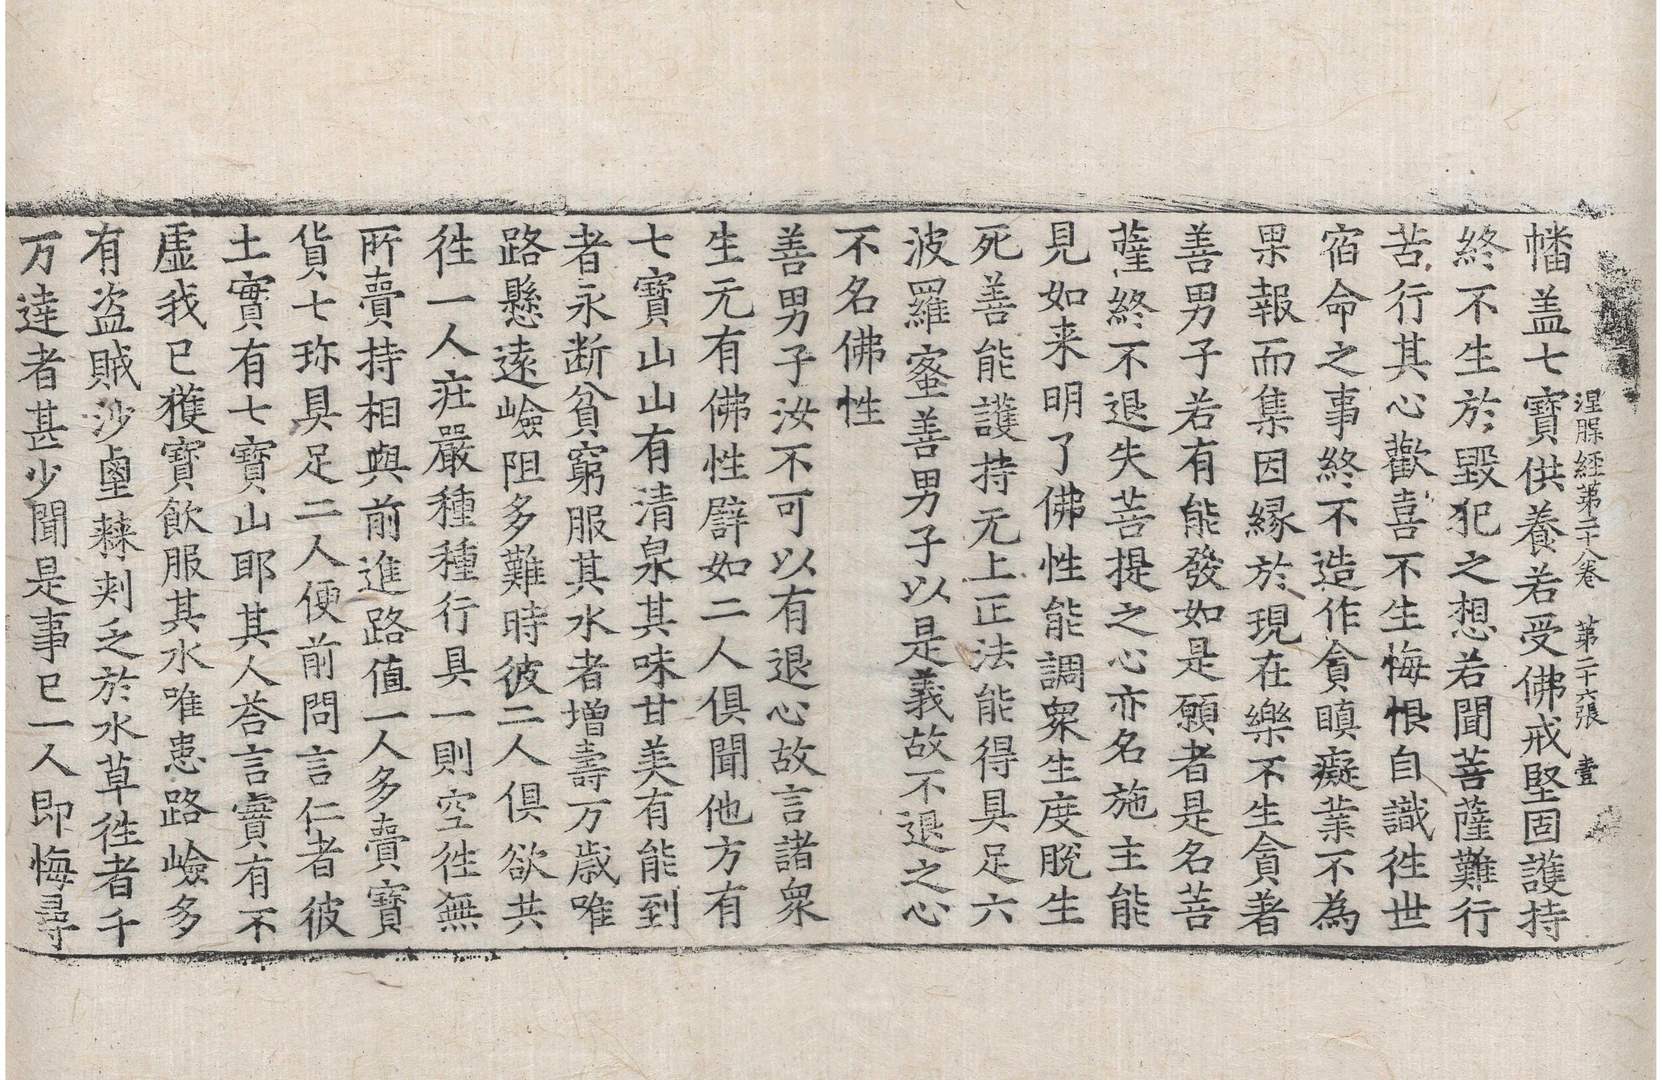 涅槃經第二十八卷　第二十六張　壹
幡盖七寶供養若受佛戒堅固護持
終不生於毀犯之想若聞菩薩難行
苦行其心歡喜不生悔恨自識徃世
宿命之事終不造作貪瞋癡業不為
果報而集因緣於現在樂不生貪著
善男子若有能發如是願者是名菩
薩終不退失菩提之心亦名施主能
見如来明了佛性能調衆生度脫生
死善能護持无上正法能得具足六
波羅蜜善男子以是義故不退之心
不名佛性
善男子汝不可以有退心故言諸衆
生无有佛性譬如二人俱聞他方有
七寶山山有清泉其味甘美有能到
者永断貧窮服其水者增壽万歲唯
路懸遠嶮阻多難時彼二人俱欲共
徃一人庄嚴種種行具一則空徃無
所賷持相與前進路值一人多賷寶
貨七珎具足二人便前問言仁者彼
土實有七寶山耶其人荅言實有不
虛我已獲寶飲服其水唯患路嶮多
有盜賊沙鹵棘刾乏於水草徃者千
万達者甚少聞是事已一人即悔尋